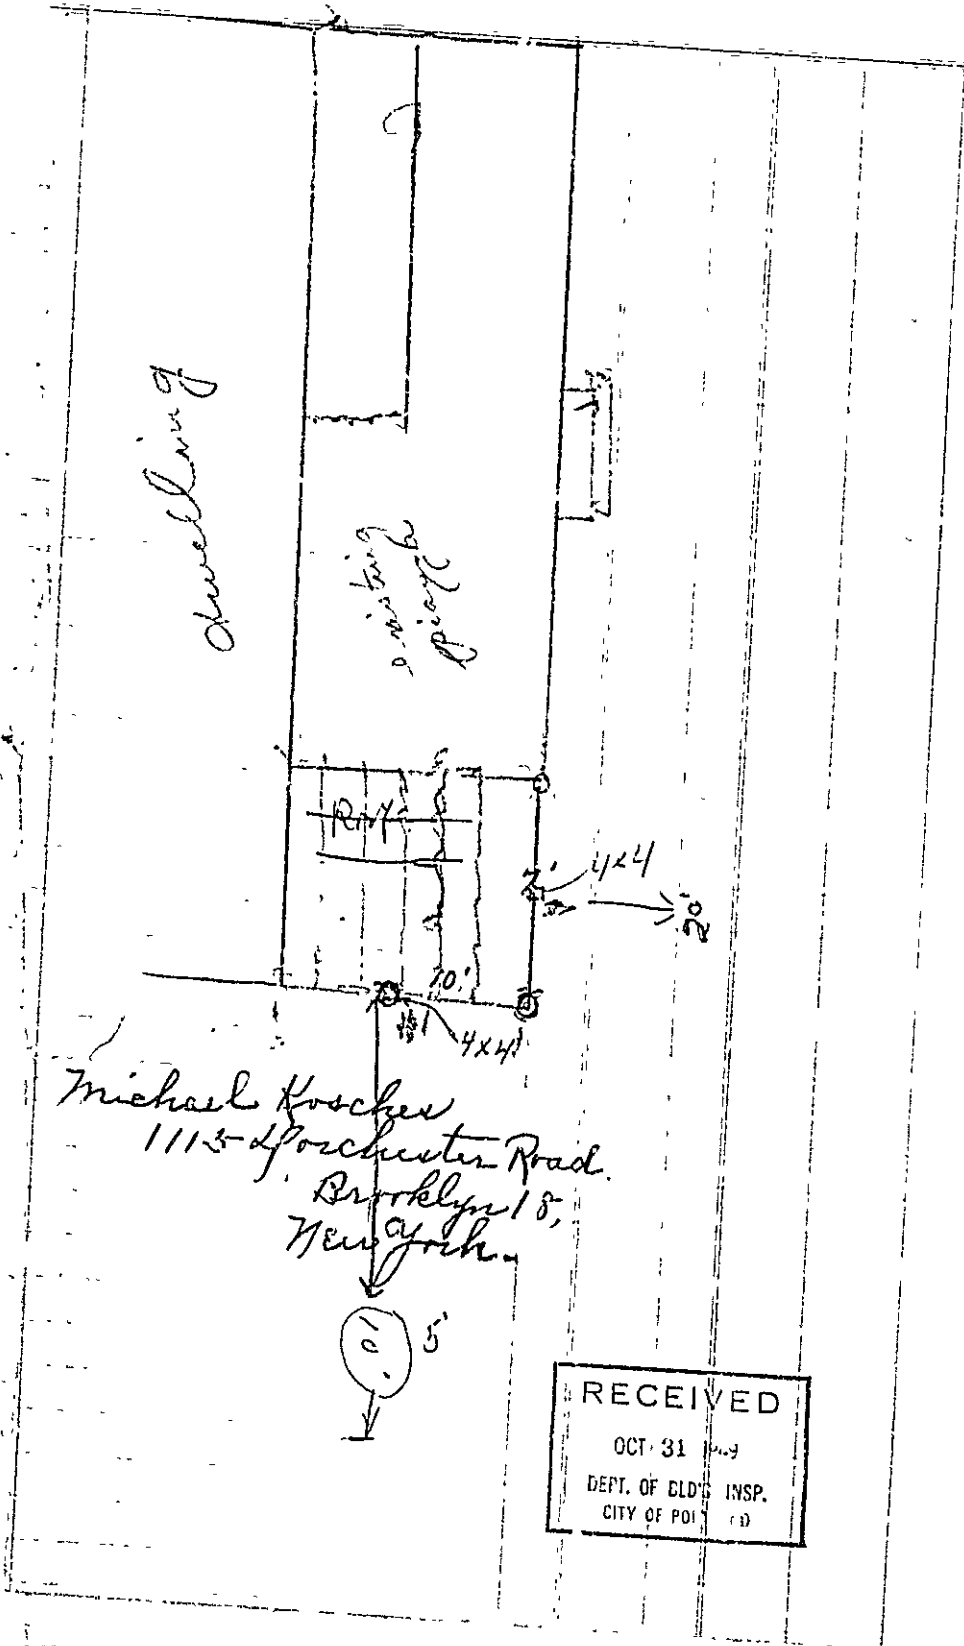 dwelling
existing
piazza
4x4
20'
10'
#1
4x4
Michael Kosches
1115 Dorchester Road
Brooklyn 18,
New York.
5'
RECEIVED
OCT 31
DEPT. OF BLD'G INSP.
CITY OF